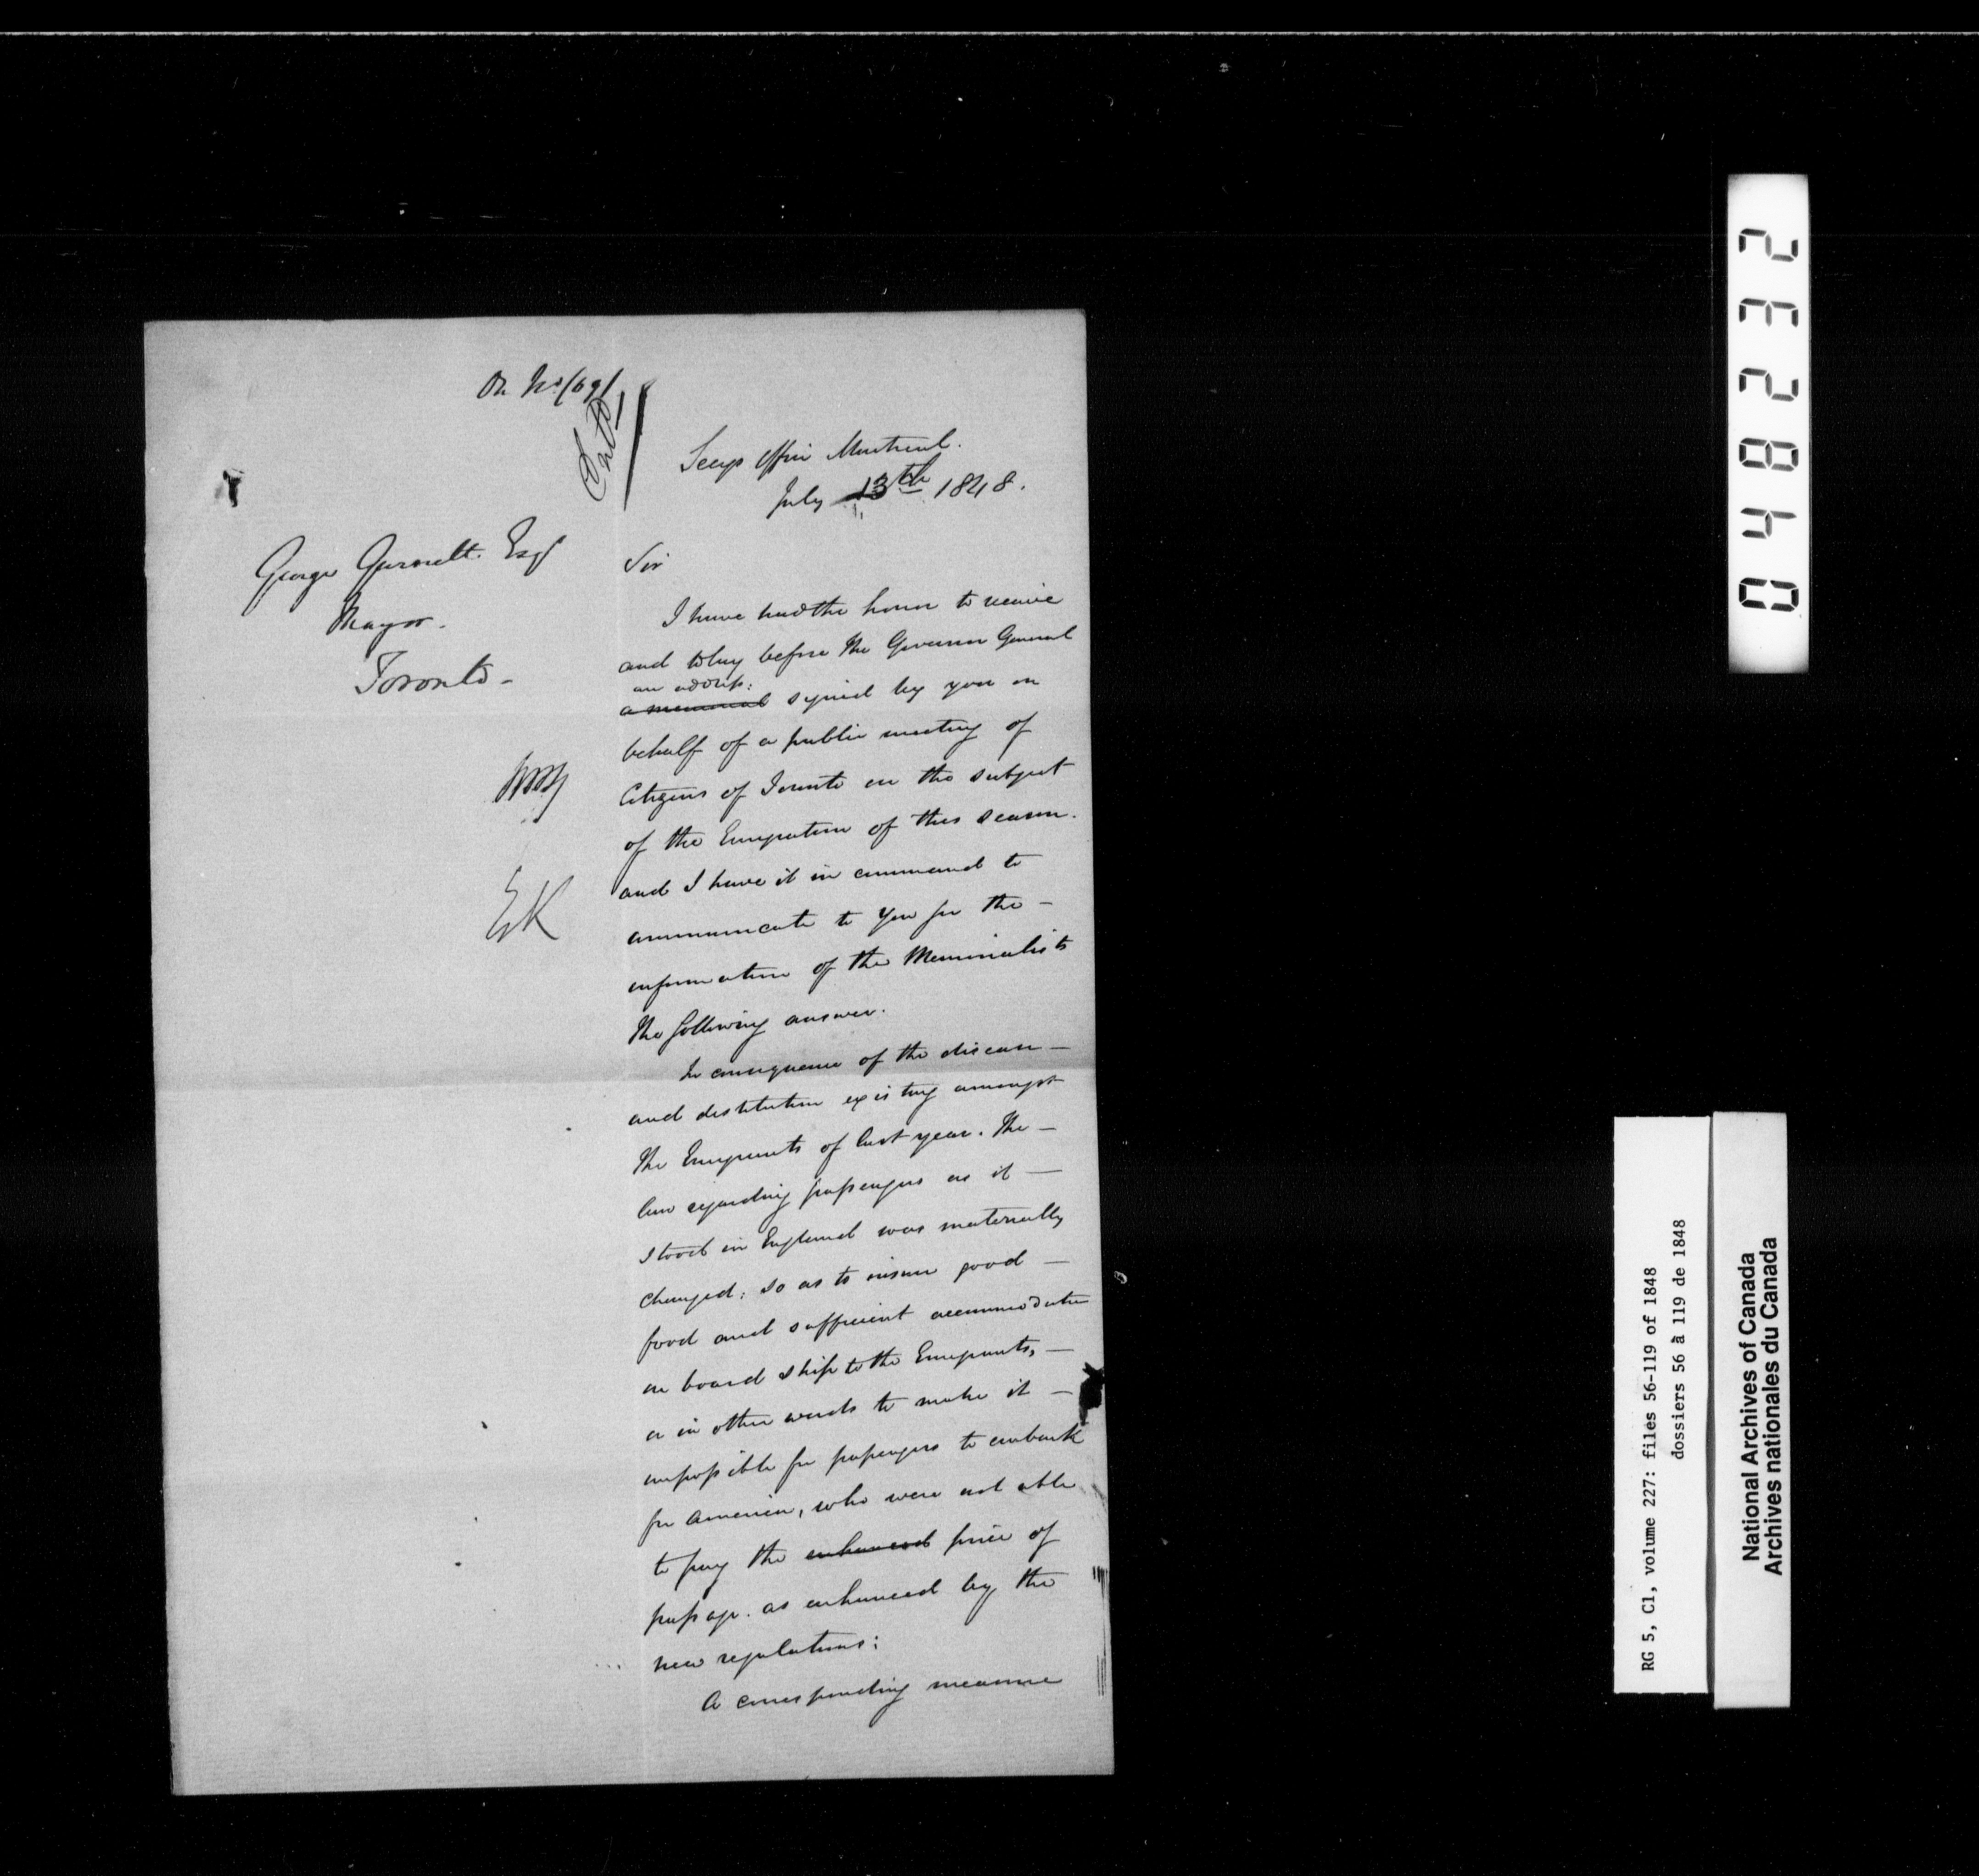 On No 69
Secys Office Montreal.
July 13th 1848.
George Gurnett. Esqr
Mayor.
Toronto-
Sir
I have had the honor to receive
and to lay before the Governor General
an address:
a memorial signed by you on
behalf of a public meeting of
Citizens of Toronto on the subject
of the Emigration of this season.
and I have it in command to
communicate to you for the -
information of the Memorialists
the following answer.
EK
In consequence of the disease -
and destitution existing amongst
the Emigrants of last year. The -
law regarding passengers as it -
stood in England was materially
changed: so as to insure good -
food and sufficient accommodation
on board ship to the Emigrants, -
or in other words to make it -
impossible for passengers to embark
for America, who were not able
to pay the enhanced price of
passage. as enhanced by the
new regulations:
A corresponding measure
0 4 8 2 3 2
RG 5, C1, volume 227: files 56-119 of 1848
dossiers 56 à 119 de 1848
National Archives of Canada
Archives nationales du Canada